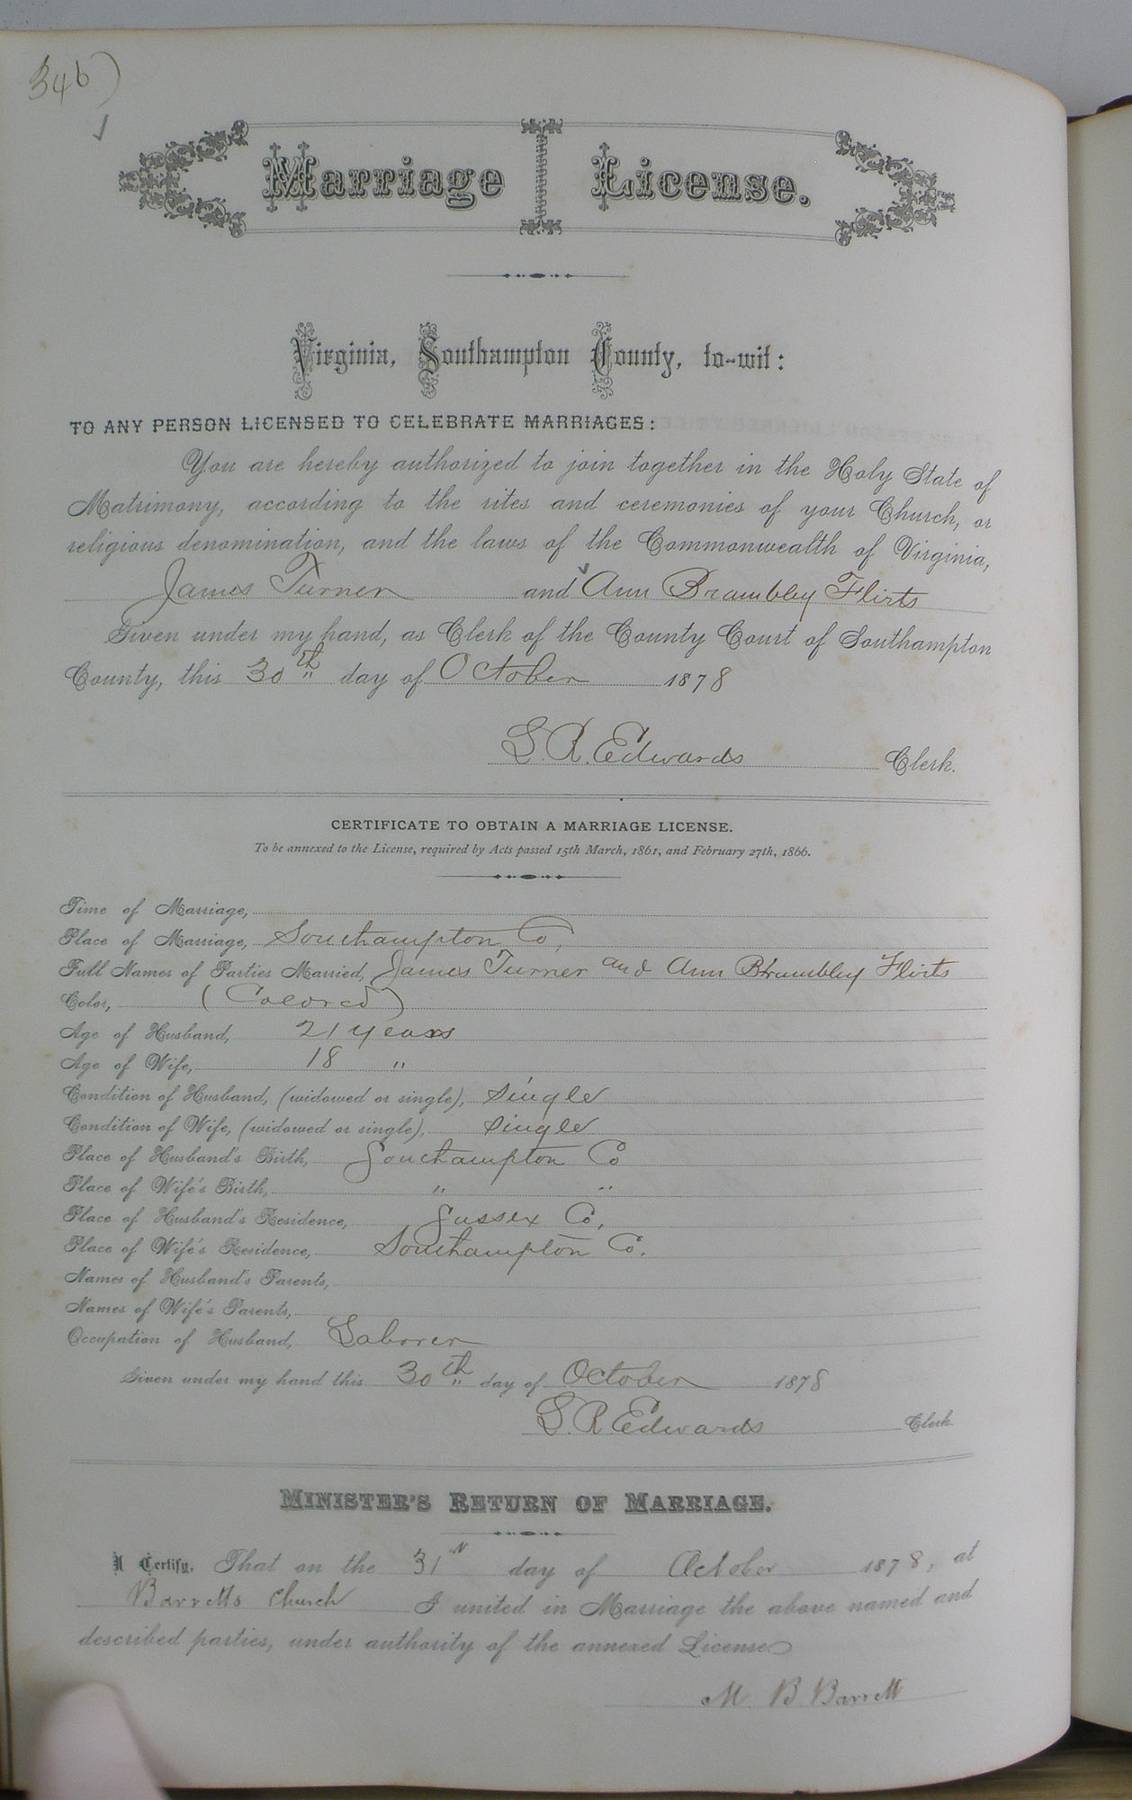 346)
Marriage License.
Virginia, Southampton County, to-wit:
TO ANY PERSON LICENSED TO CELEBRATE MARRIAGES:
You are hereby authorized to join together in the Holy State of
Matrimony, according to the rites and ceremonies of your Church, or
religious denomination, and the laws of the Commonwealth of Virginia,
James Turner and Ann Brambley Flirts
Given under my hand, as Clerk of the County Court of Southampton
County, this 30th day of October 1878
L. R. Edwards Clerk.
CERTIFICATE TO OBTAIN A MARRIAGE LICENSE.
To be annexed to the License, required by Acts passed 15th March, 1861, and February 27th, 1866.
Time of Marriage,
Place of Marriage, Southampton Co,
Full Names of Parties Married, James Turner and Ann Brambley Flirts
Color, (Colored)
Age of Husband, 21 years
Age of Wife, 18 "
Condition of Husband, (widowed or single), single
Condition of Wife, (widowed or single), single
Place of Husband's Birth, Southampton Co
Place of Wife's Birth, " "
Place of Husband's Residence, Sussex Co,
Place of Wife's Residence, Southampton Co.
Names of Husband's Parents,
Names of Wife's Parents,
Occupation of Husband, Laborer
Given under my hand this 30th day of October 1878
L. R Edwards Clerk
MINISTER'S RETURN OF MARRIAGE.
I Certify, That on the 31 day of October 1878, at
Barretts Church I united in Marriage the above named and
described parties, under authority of the annexed License
M B Barrett